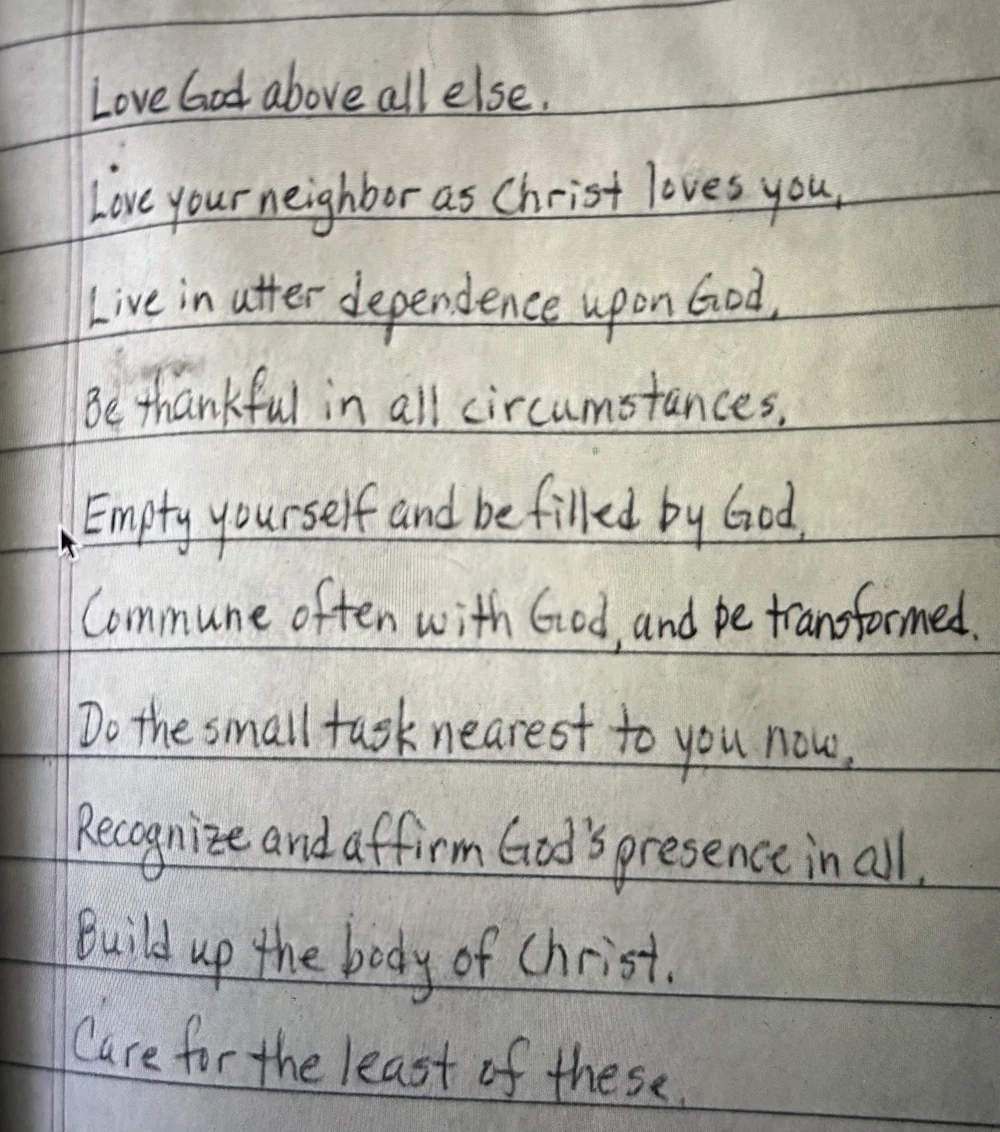 Love God above all else.
Love your neighbor as Christ loves you.
Live in utter dependence upon God.
Be thankful in all circumstances.
Empty yourself and be filled by God.
Commune often with God, and be transformed.
Do the small task nearest to you now.
Recognize and affirm God's presence in all.
Build up the body of Christ.
Care for the least of these.